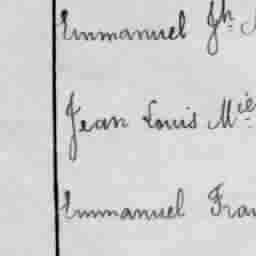 Emmanuel Jh.
Jean Louis Mie
Emmanuel Fran